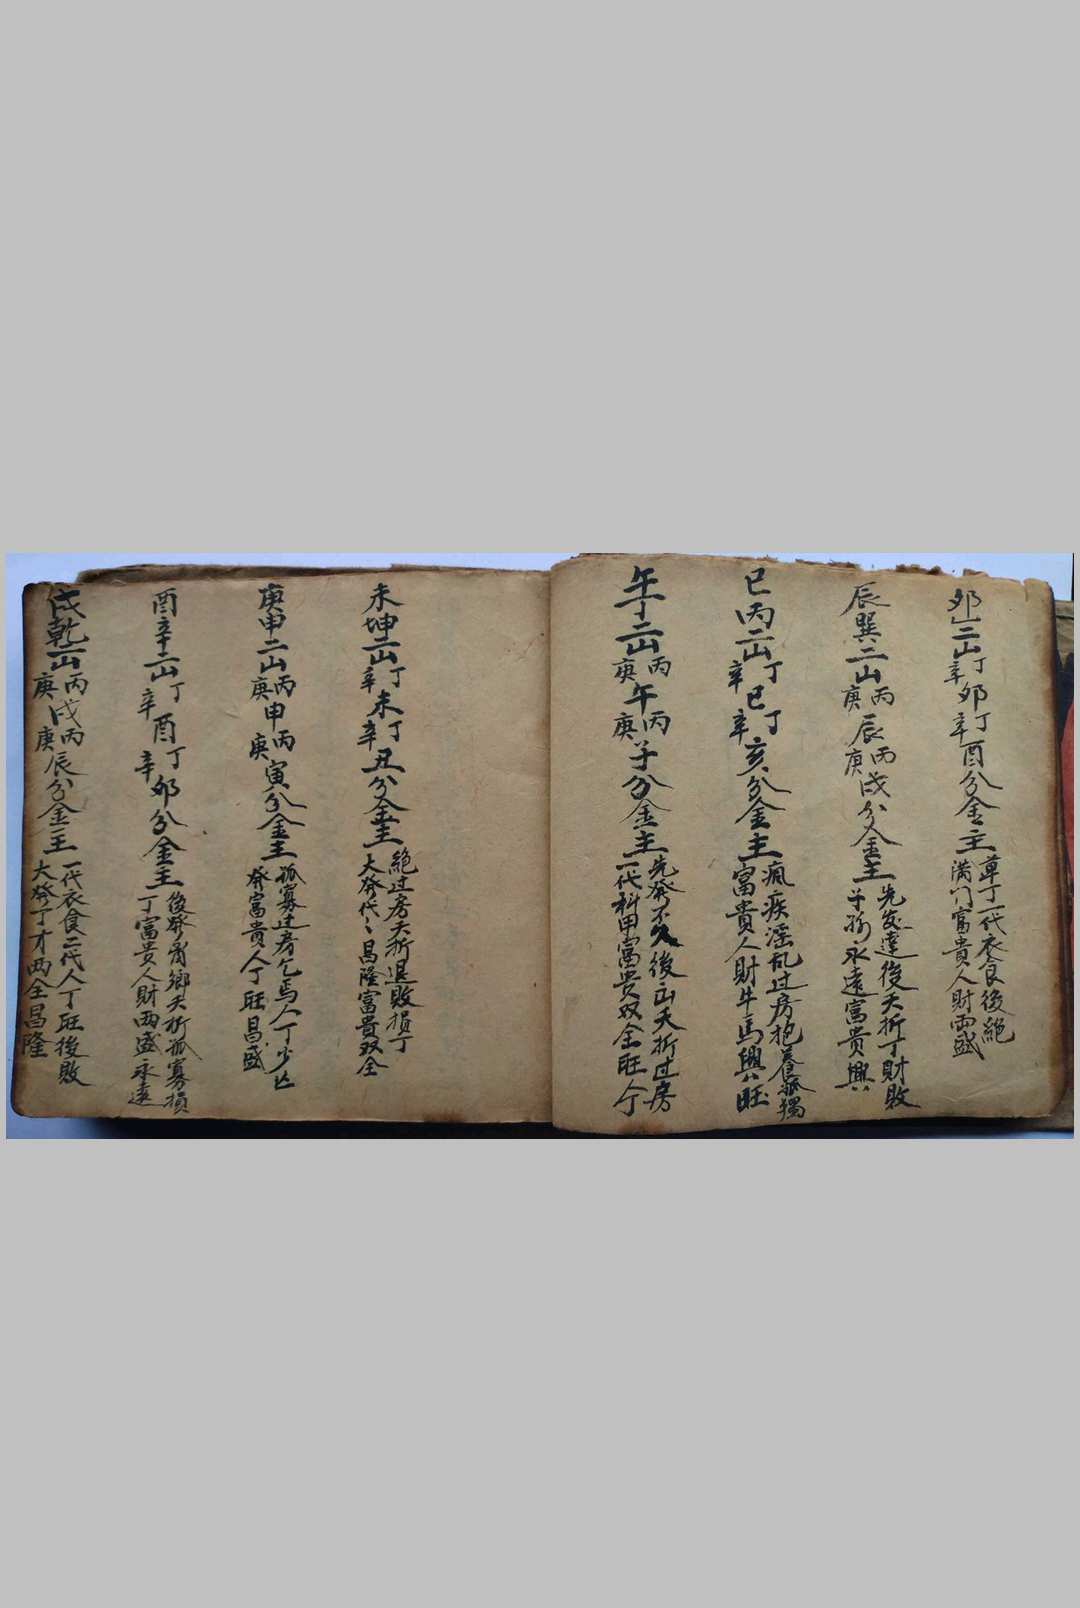 卯乙二山丁辛卯丁辛酉分金主草丁一代衣食後絕
滿门富貴人財両盛
辰巽二山丙庚辰丙庚戌分金主先发達後夭折丁財敗
子孫永遠富贵興
巳丙二山丁辛巳丁辛亥分金主瘋疾淫乱过房抱養孤獨
富貴人財牛馬興旺
午丁二山丙庚午丙庚子分金主先發不久後亡夭折过房
一代科甲富贵双全旺人丁
未坤二山丁辛未丁辛丑分金主絕过房夭折退敗損丁
大發代〻昌隆富貴双全
庚申二山丙庚申丙庚寅分金主孤寡过房乞焉人丁少亡
發富貴人丁旺昌盛
酉辛二山丁辛酉丁辛卯分金主後發离鄉夭折孤寡損
丁富貴人財両盛永遠
戌乾二山丙庚戌丙庚辰分金主一代衣食二代人丁旺後敗
大發丁才両全昌隆